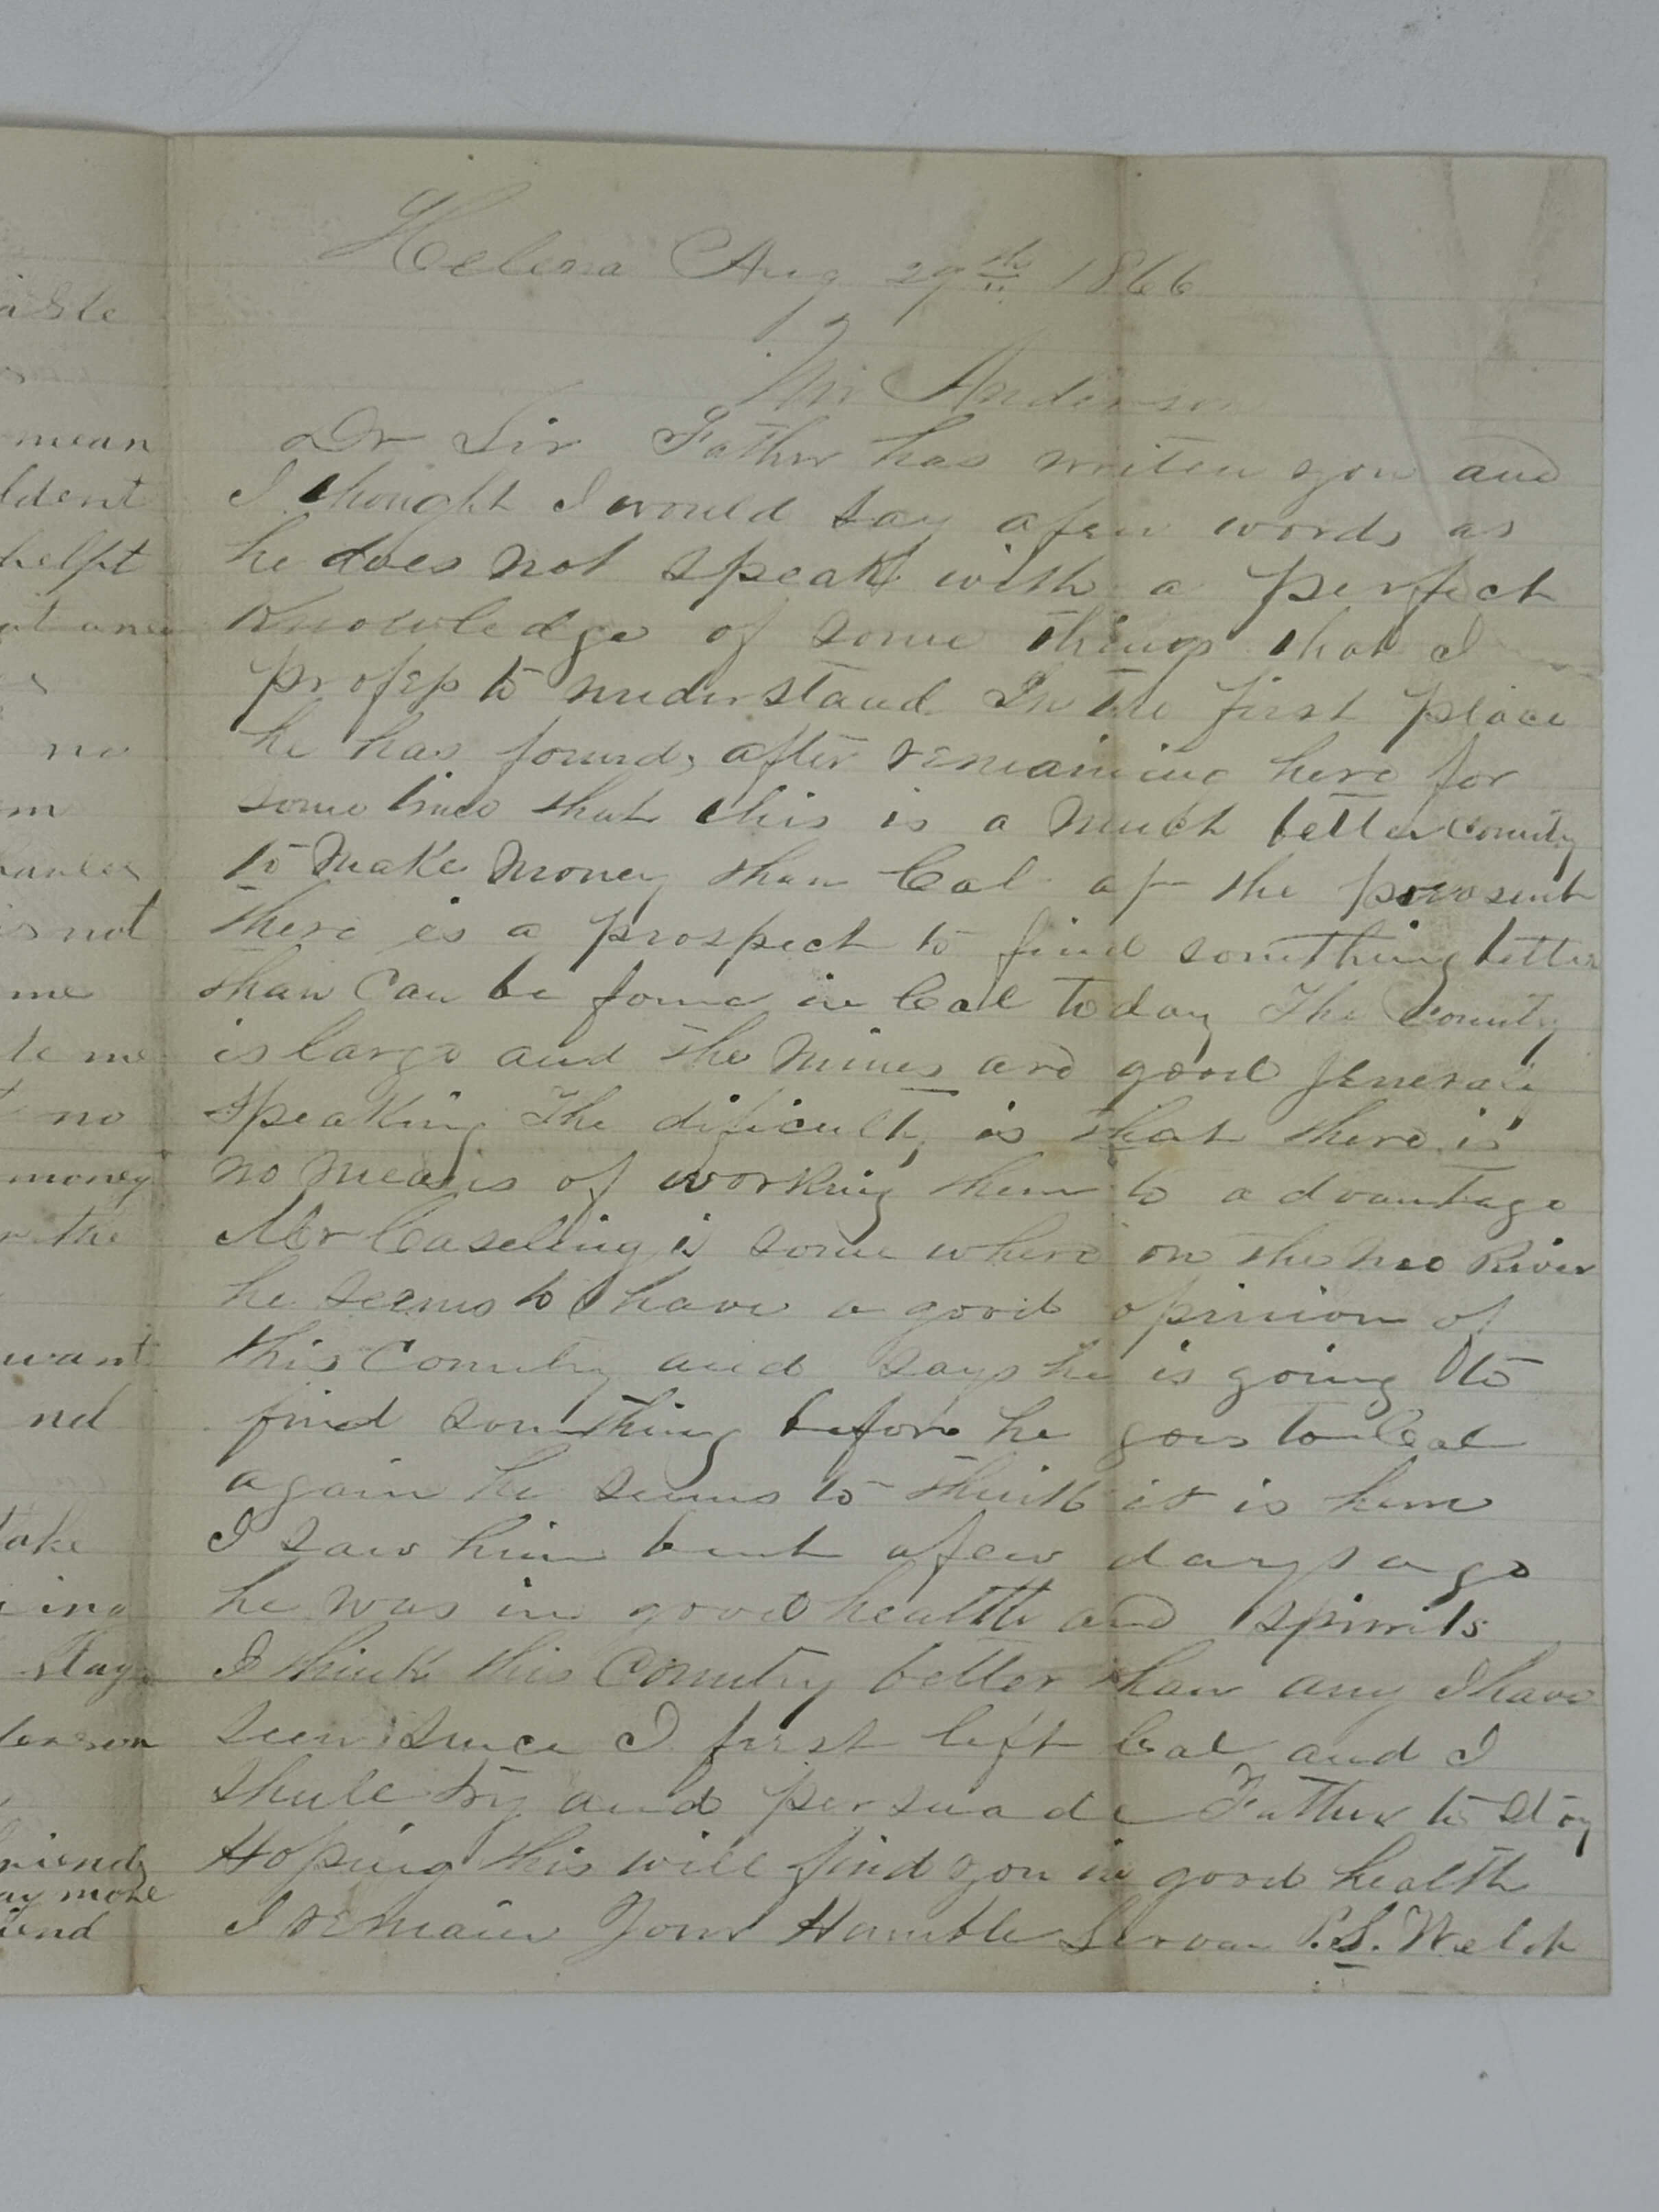 able
mean
ldent
helpt
at one
no
m
is not
me
te me
no
money
the
want
nd
take
ing
stay
friend
ay more
iend
Helena Aug 29th 1866
Mr Anderson
Dr Sir Father has writen you and
I thought I would say afew words as
he does not speak with a perfect
knowledge of some things that I
profess to understand In the first place
he has found, after remaining here for
some time that this is a much better country
to make money than Cal at the present
there is a prospect to find somthing better
than can be found in Cal today The Country
is large and the mines are good generaly
speaking The dificulty is that there is
no means of working them to advantage
Mr Caseling is some where on the River
he seems to have a good opinion of
this Country and says he is going to
find somthing before he goes to Cal
again he seems to think it is here
I saw him but afew days ago
he was in good health and spirits
I think this Country better than any I have
seen since I first left Cal and I
shall try and persuade Father to stay
Hoping this will find you in good health
I remain Your Humble Servan P.S. Welch